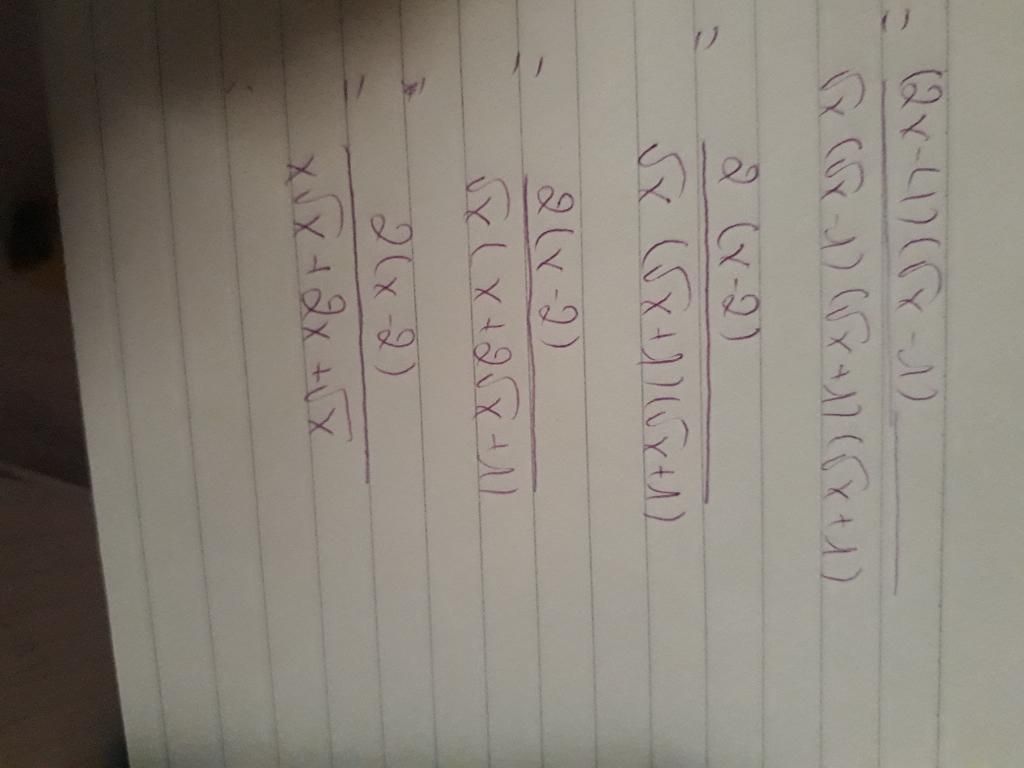 = (2x-4)(√x-1) / √x(√x-1)(√x+1)(√x+1)
= 2(x-2) / √x(√x+1)(√x+1)
= 2(x-2) / √x(x+2√x+1)
= 2(x-2) / x√x+2x+√x